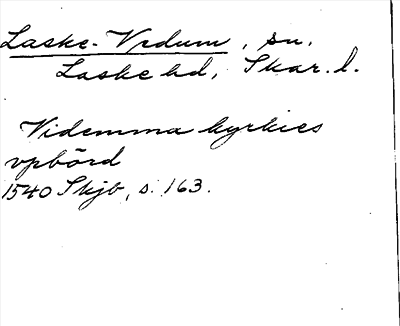 Laske-Vedum, sn.
Laske hd, Skar. l.
Videmma kyrkies
vpbörd
1540 Skjb, s. 163.